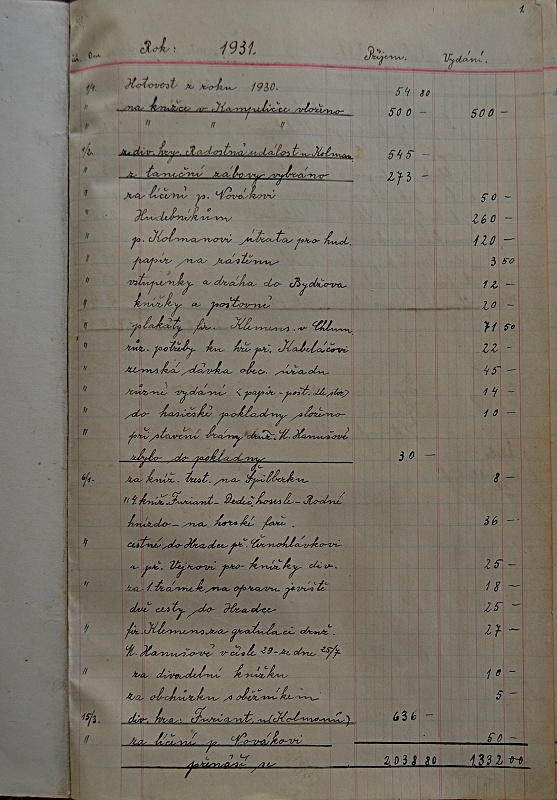 1.
Dne Rok: 1931. Příjem. Vydání.
1/1. Hotovost z roku 1930. 54 80
" na knížce v Kampeličce vloženo 500 - 500 -
" " " "
1/2. ze div. hry. Radostná událost u Kolman 545 -
" z taneční zábavy vybráno 273 -
" za líčení p. Novákovi 50 -
" Hudebníkům 260 -
" p. Kolmanovi útrata pro hud. 120 -
" papír na zástěnu 3 50
" vstupenky a dráha do Bydžova 12 -
" knížky a poštovné 20 -
" plakáty fir. Klemens. v Chlum. 71 50
" růz. potřeby ku hře př. Kabeláčovi 22 -
" zemská dávka obec. úřadu 45 -
" různé vydání (papír - pošt. dle sloz) 14 -
" do hasičské pokladny složeno 10 -
" při stavení brány druž. K. Hanušové
zbylo do pokladny 30 -
6/1. za kníž. trest. na Špilberku 8 -
" 4 kníž. Furiant - Dědič, housle - Rodné
hnízdo - na horské faře. 36 -
" cestné do Hradce př. Černohlávkovi
a př. Vejrovi pro knížky div. 25 -
" za 1. trámek na opravu jeviště 18 -
dvě cesty do Hradce 25 -
" fir. Klemens. za gratulaci druž. 27 -
K. Hanušové v čísle 29 - ze dne 25/7
" za divadelní knížku 10 -
za obchůzku s oběžníkem 5 -
15/3. div. hra. Furiant u (Kolmanů) 636 -
" za líčení p. Novákovi 50 -
přenáší se 2038 80 1332 00